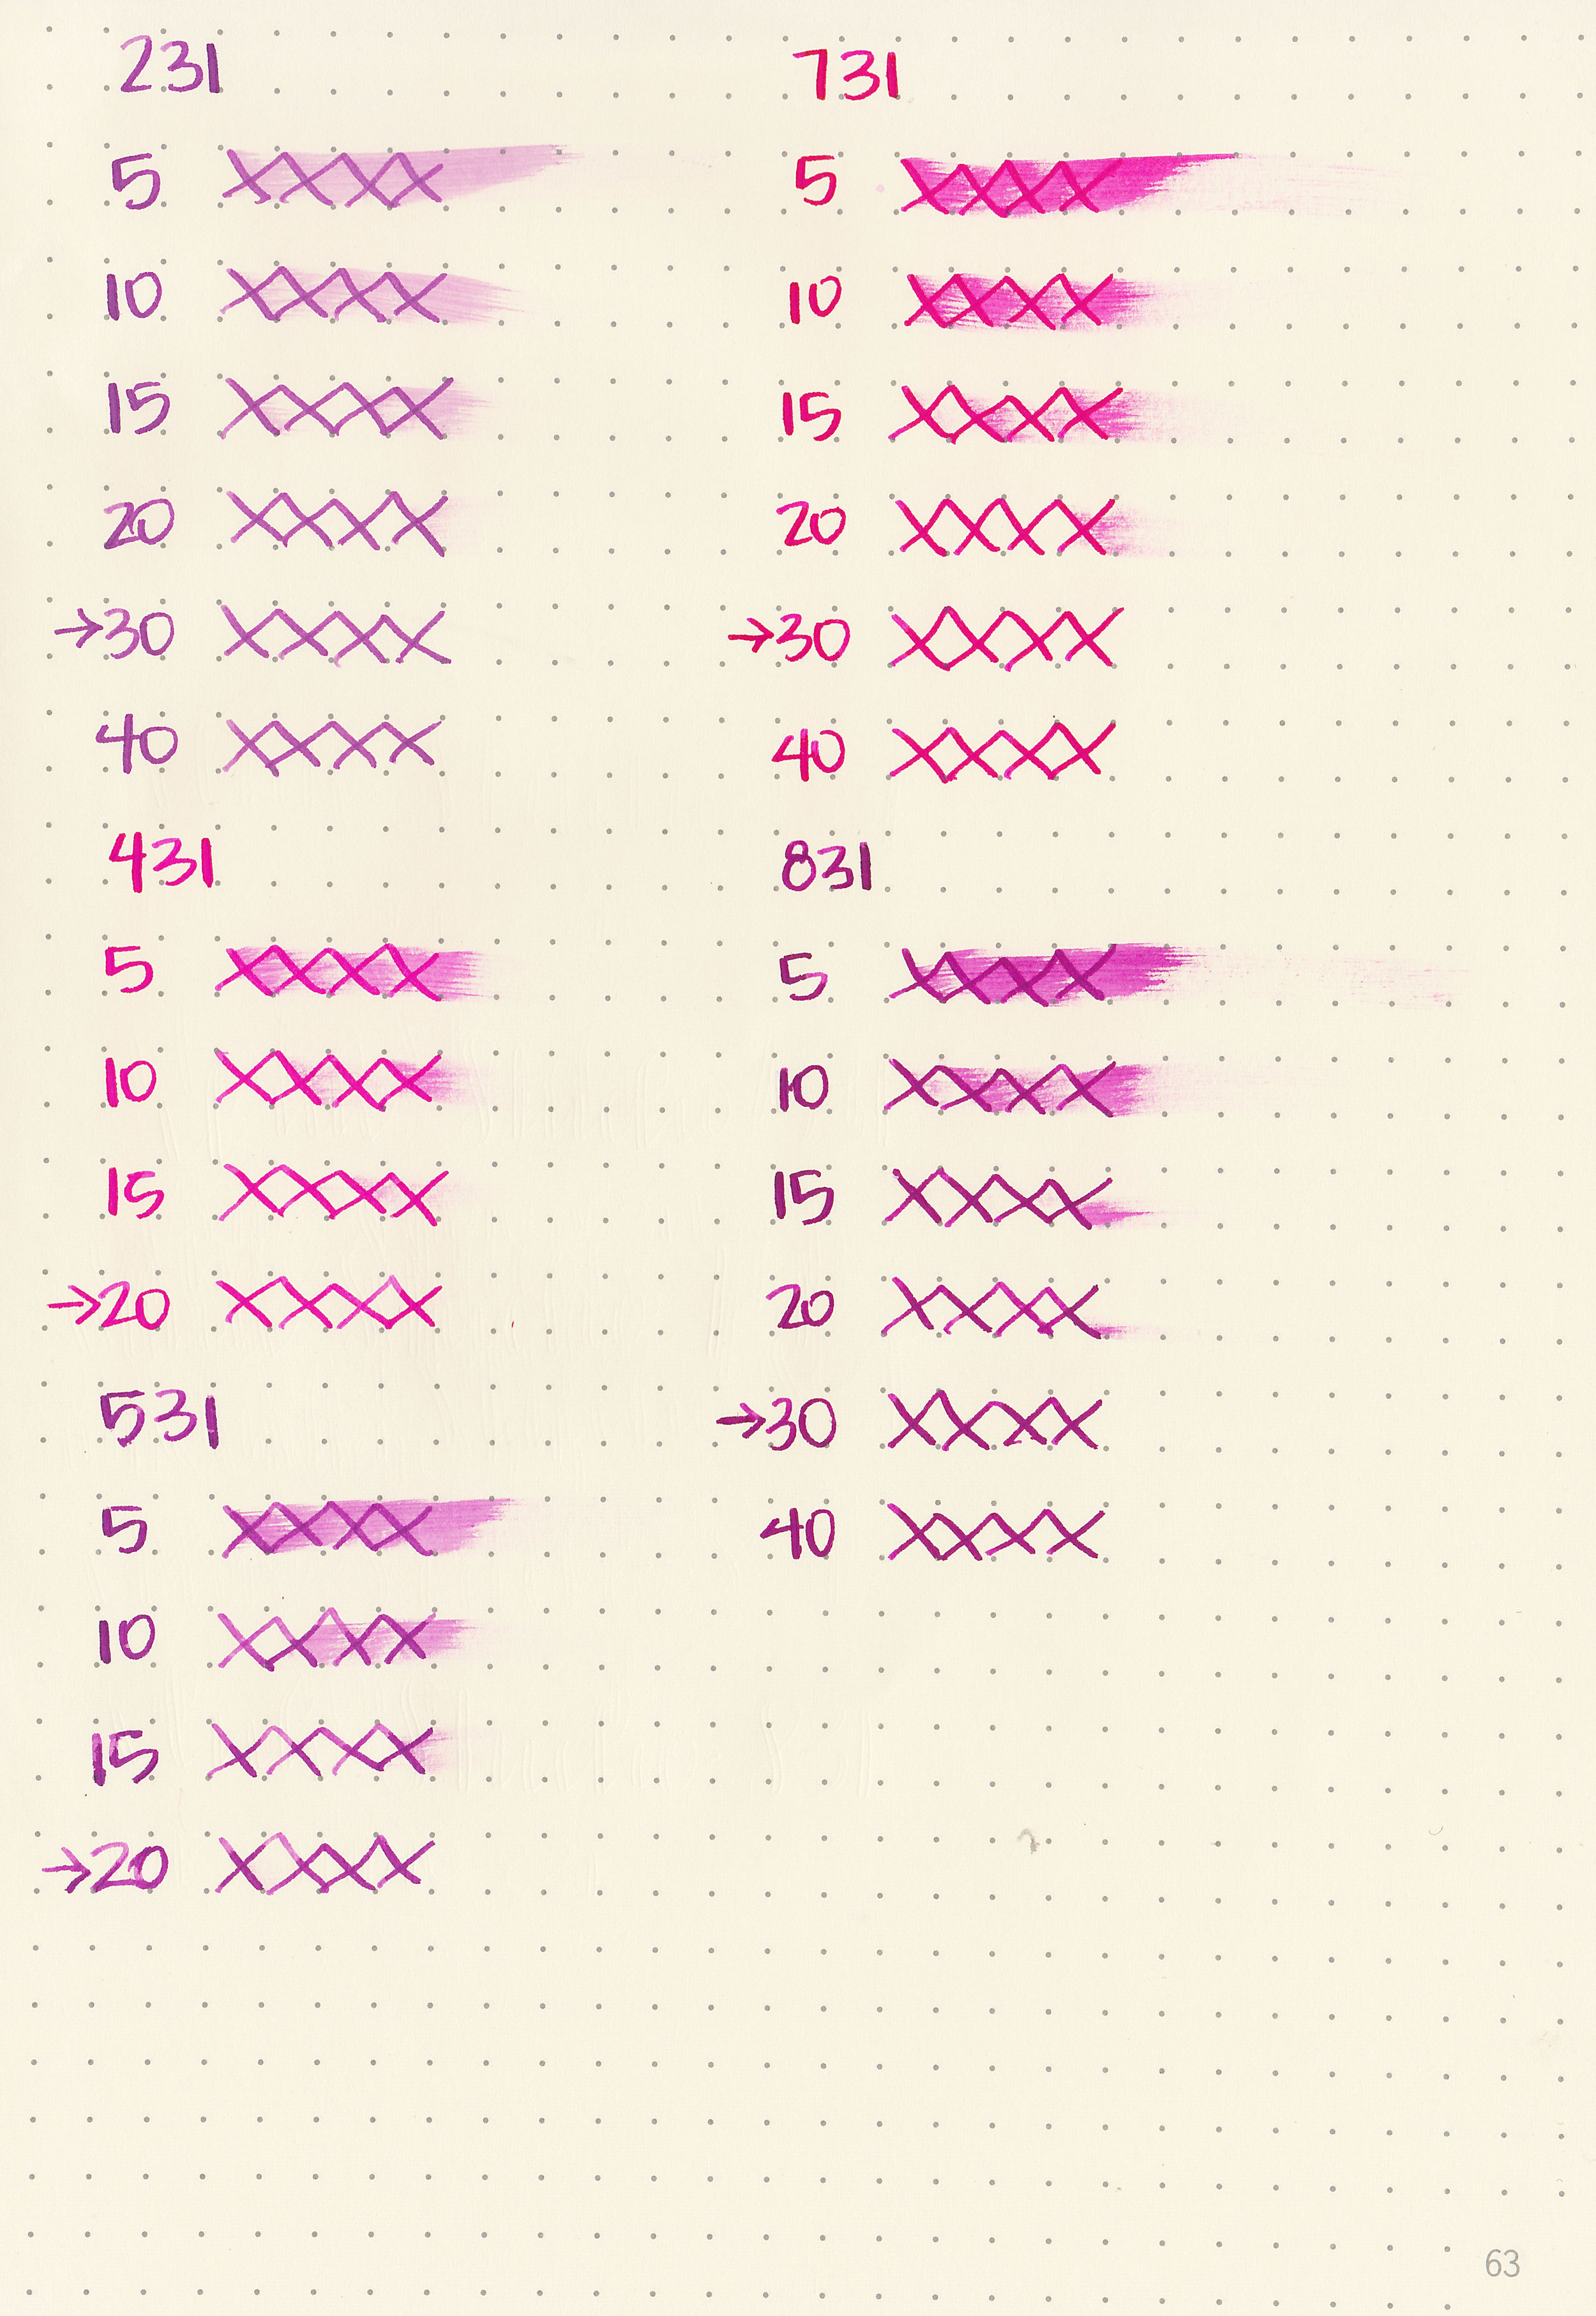 231
5 XXXX
10 XXXX
15 XXXX
20 XXXX
→30 XXXX
40 XXXX
431
5 XXXX
10 XXXX
15 XXXX
→20 XXXX
531
5 XXXX
10 XXXX
15 XXXX
→20 XXXX
731
5 XXXX
10 XXXX
15 XXXX
20 XXXX
→30 XXXX
40 XXXX
831
5 XXXX
10 XXXX
15 XXXX
20 XXXX
→30 XXXX
40 XXXX
63